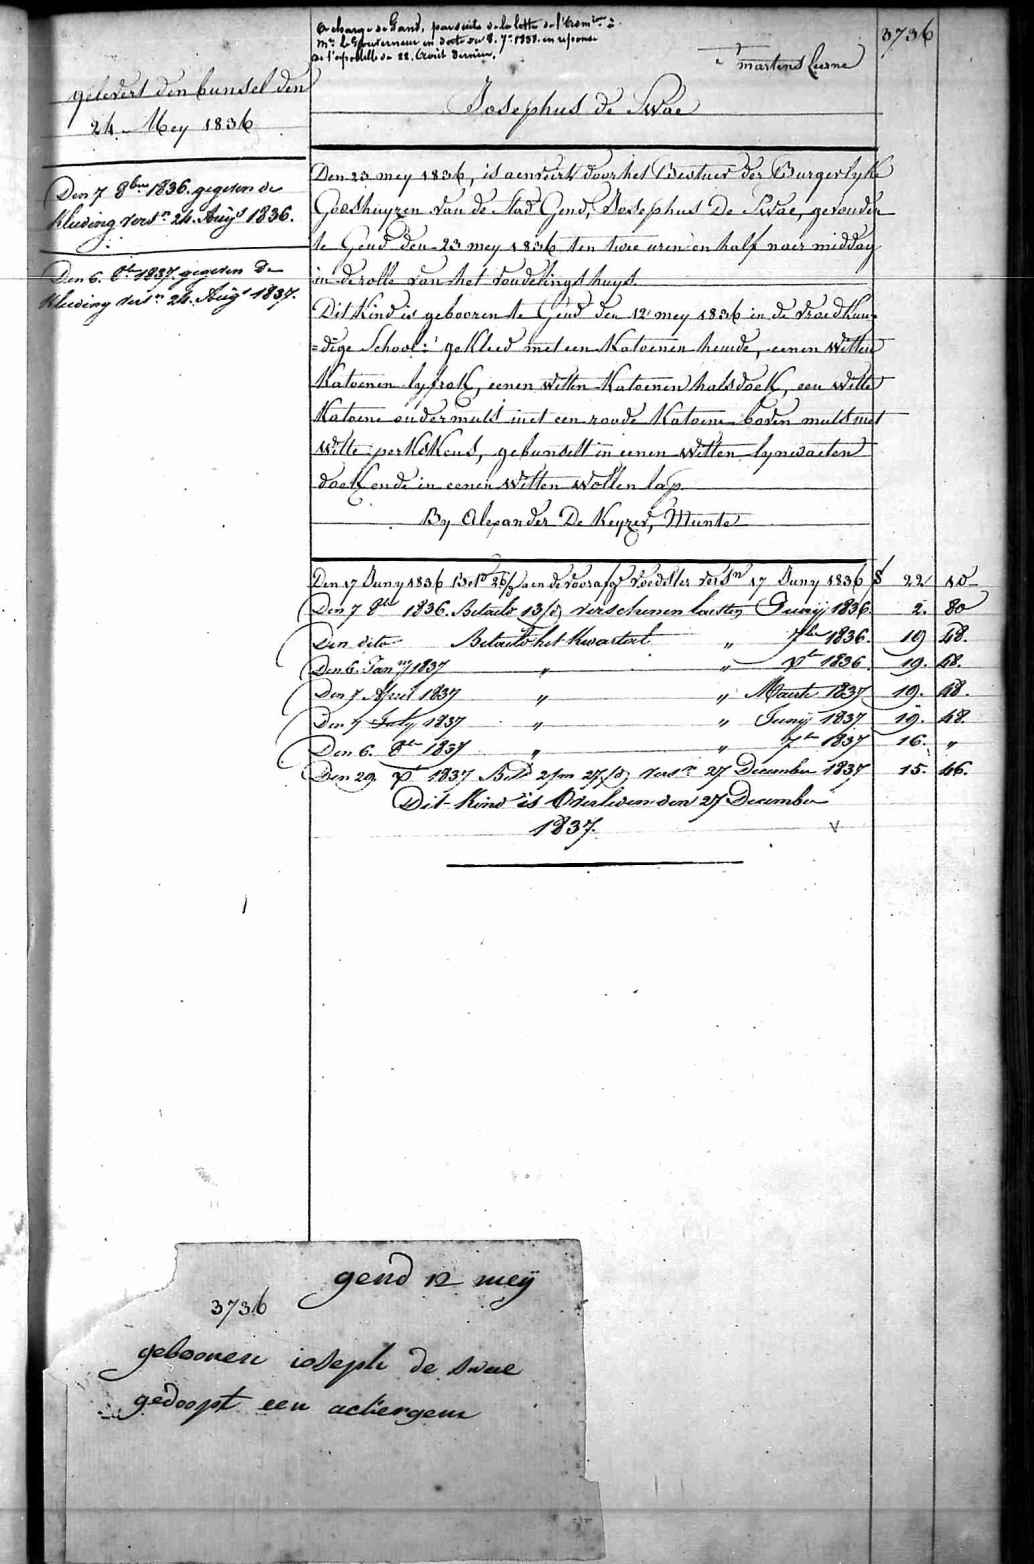 A charge de Gand, par suite de la lettre de
Mr le Gouverneur en date du 8. 7re 1838. en reponse
de l'apostille du 22. Août dernier.
3736
martens
Josephus de Swae
gelevert den bunsel den
24 Mey 1836
Den 7 8bre 1836. gegeven de
kleeding versn 24. Augt 1836.
Den 6. 8re 1837. gegeven de
Kleeding versn 24. Augt 1837.
Den 23 mey 1836, is aenveirt door het Bestuer der Burgerlyke
Godshuyzen van de stad Gend, Josephus De Swae, gevonden
te Gend den 23 mey 1836 ten twee uren en half naer middag
in de rolle van het vondelings huys.
Dit Kind is gebooren te Gend den 12 mey 1836 in de vroedkun=
=dige School: gekleed met een Katoenen hemde, eenen witten
Katoenen lyfrok, eenen witten Katoenen halsdoek, een witte
Katoene ondermuts met een roode Katoene boven muts met
witte perkskens, gebunselt in eenen witten lynwaeten
doek ende in eenen witten wollen lap.
By Alexander De Keyzer, Munte
Den 17 Juny 1836 Bet. 26/ aen de voorafge voedster versn 17 Juny 1836 22 10
Den 7 8re 1836. Betaeld 13/ verschenen laesten Juny 1836. 2. 80
Den dito Betaeld het kwartael „ 7bre 1836. 19 48.
Den 6. Jany 1837 „ „ Xre 1836. 19. 48.
Den 7 April 1837 „ „ Maert 1837 19. 48.
Den 7 July 1837 „ „ Juny 1837 19. 48.
Den 6. 8re 1837 „ „ 7re 1837 16. „
Den 29 Xr 1837 Bet. 2/m 27/ versn 27 December 1837 15. 46.
Dit Kind is Overleden den 27 December
1837.
gend 12 meÿ
3736
geboonen ioseph de swae
gedoopt een achergem